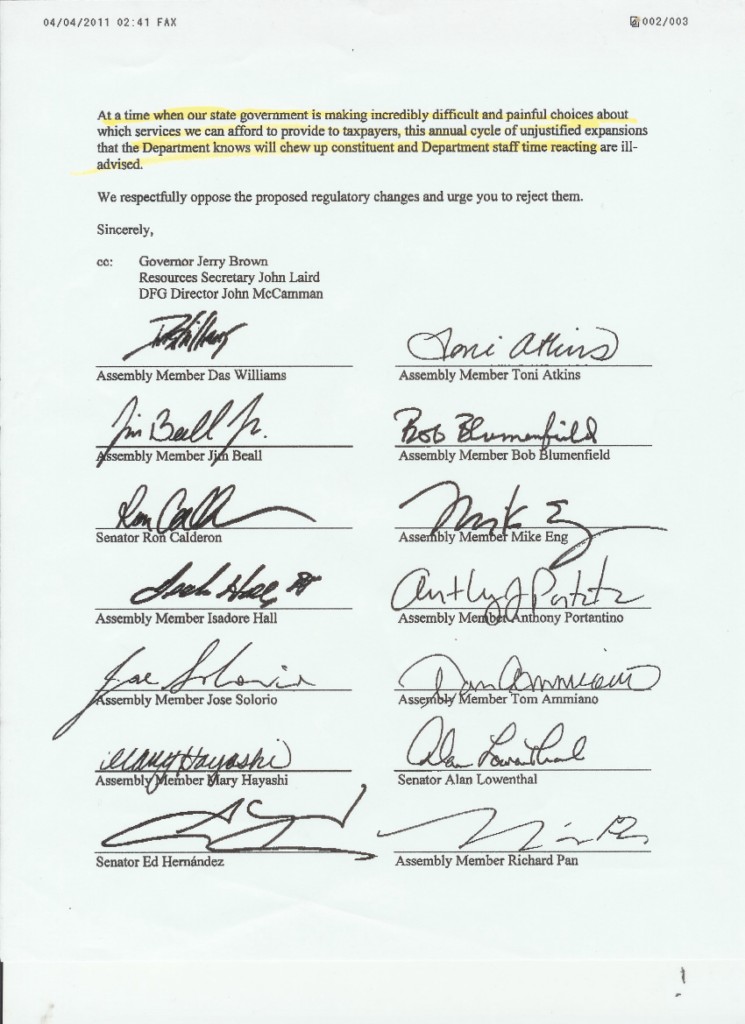 04/04/2011 02:41 FAX 002/003
At a time when our state government is making incredibly difficult and painful choices about
which services we can afford to provide to taxpayers, this annual cycle of unjustified expansions
that the Department knows will chew up constituent and Department staff time reacting are ill-
advised.
We respectfully oppose the proposed regulatory changes and urge you to reject them.
Sincerely,
cc: Governor Jerry Brown
Resources Secretary John Laird
DFG Director John McCamman
Toni Atkins
Assembly Member Das Williams Assembly Member Toni Atkins
Jim Beall Jr. Bob Blumenfield
Assembly Member Jim Beall Assembly Member Bob Blumenfield
Ron Mike
Senator Ron Calderon Assembly Member Mike Eng
Assembly Member Isadore Hall Assembly Member Anthony Portantino
Jose Solorio Ammiano
Assembly Member Jose Solorio Assembly Member Tom Ammiano
Mary Hayashi Alan Lowenthal
Assembly Member Mary Hayashi Senator Alan Lowenthal
Senator Ed Hernández Assembly Member Richard Pan